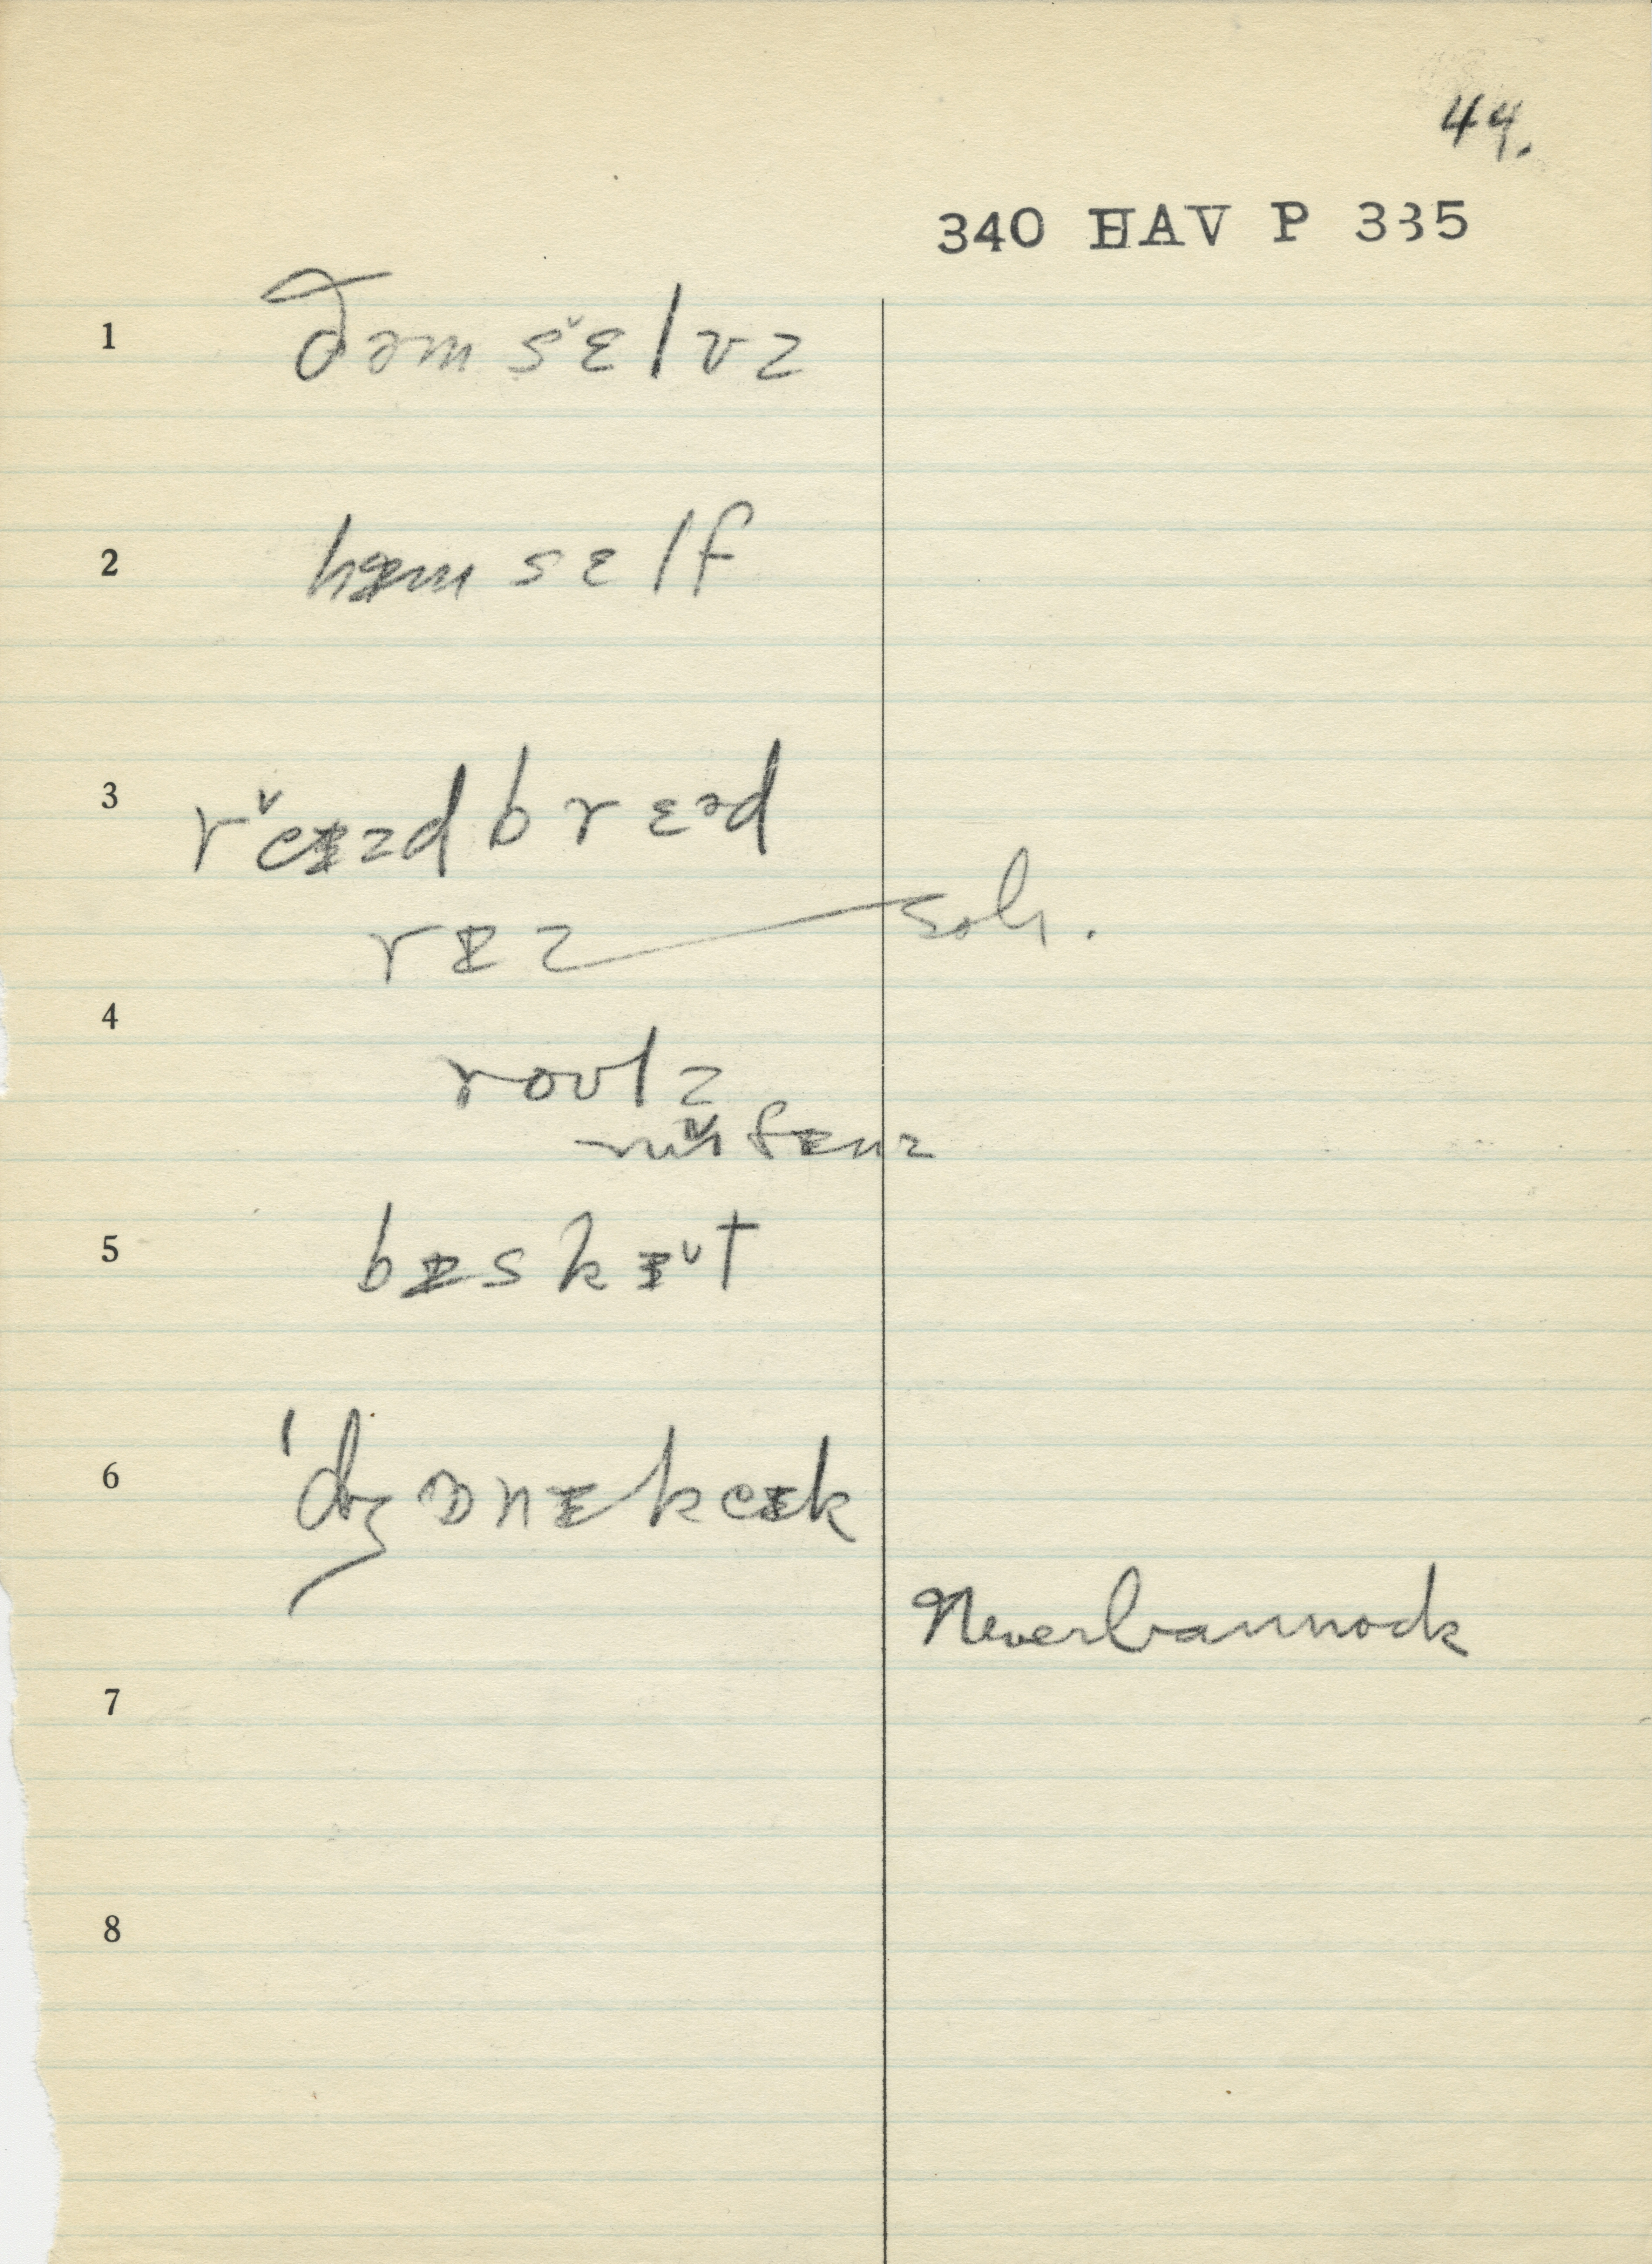 44.
340 HAV P 335
1 ðəmsɛ̌lvz
2 hɪmsɛlf
3 rěɪzdbrɛəd
rɪz soh.
4
roʊlz
fɪnz
5 bɪskɪ̌t
6 'dʒɒnɪkeɪk
Neverbannock
7
8